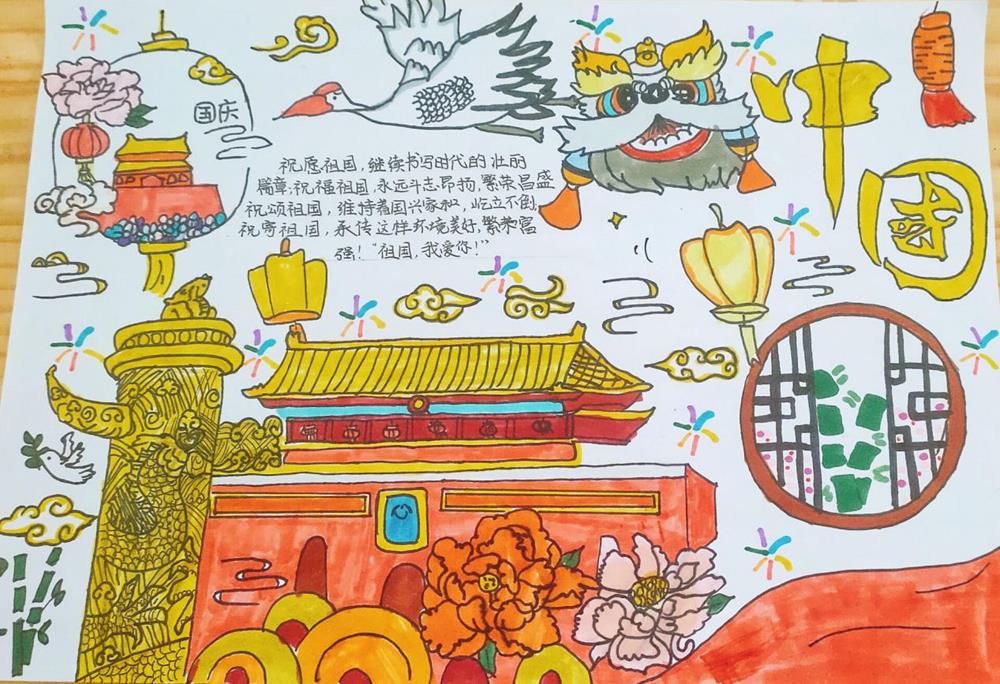 国庆
祝愿祖国,继续书写时代的壮丽
篇章;祝福祖国,永远斗志昂扬,繁荣昌盛
祝颂祖国,维持着国兴家和,屹立不倒;
祝寄祖国,承传这样环境美好,繁荣富
强!“祖国,我爱你!”
中
国